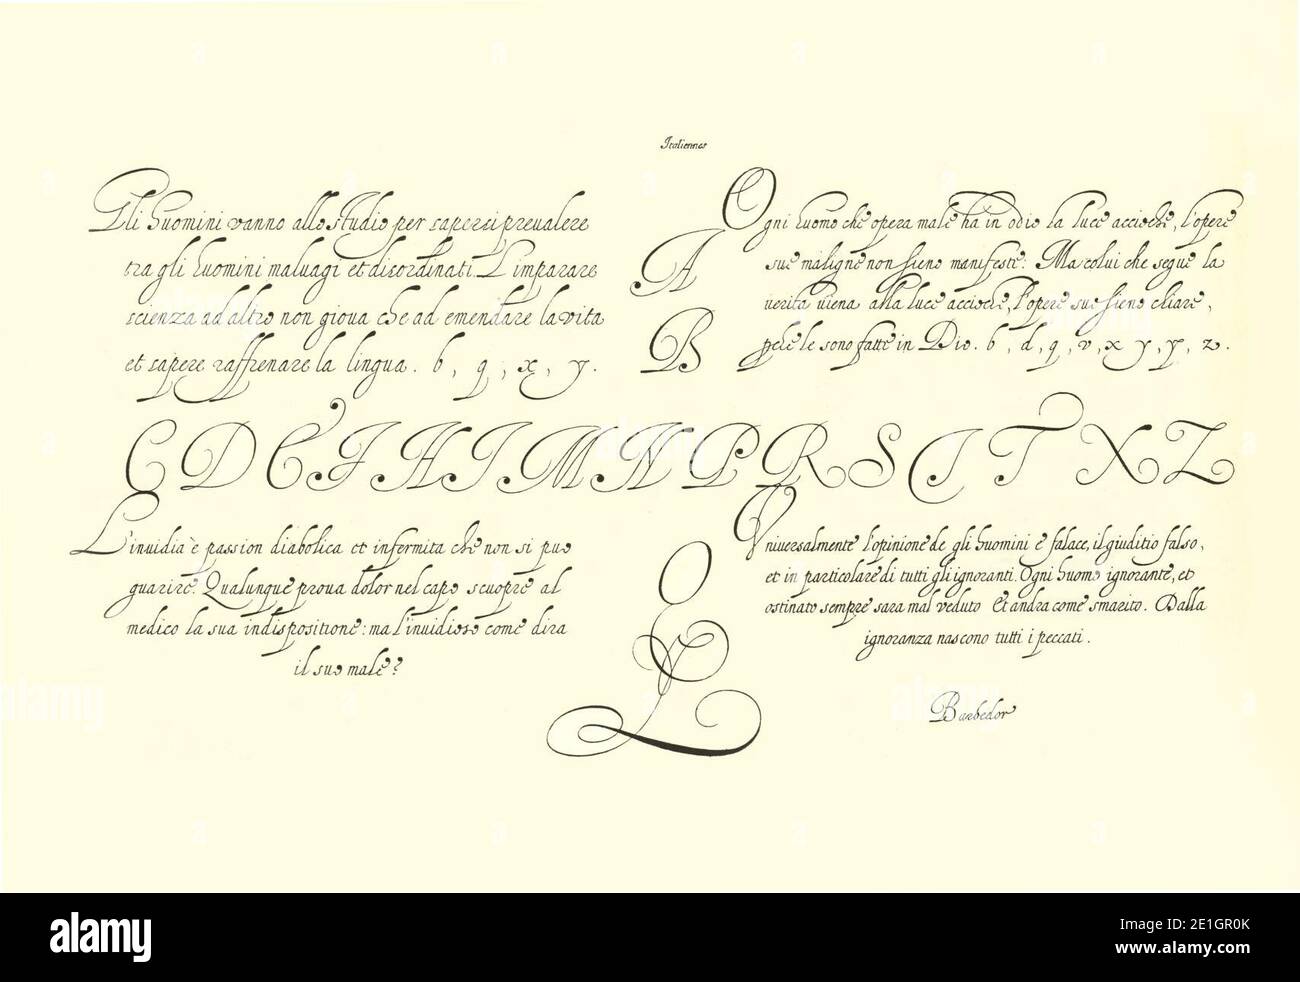 Italiennes
Gli huomini vanno allo studio per sapersi prevalere
tra gli huomini maluagi et disordinati. L'imparare
scienza ad altro non gioua che ad emendare la vita
et sapere raffrenare la lingua. b, q, x, y.
Ogni huomo che opera male ha in odio la luce accioche, l'opere
sue maligne non sieno manifeste: Ma colui che segue la
verita viena alla luce accioche, l'opere sue sieno chiare,
pche le sono fatte in Dio. b, d, q, v, x, y, p, z.
A
B
C D E F H I M N P R S T X Z
L'inuidia è passion diabolica et infermita che non si puo
guarire. Qualunque proua dolor nel capo scuopre al
medico la sua indispositione: ma l'inuidioso come dira
il suo male?
Universalmente l'opinione de gli huomini è falace, il giuditio falso,
et in particolare di tutti gli ignoranti. Ogni huomo ignorante, et
ostinato sempre sara mal veduto et andra come smarito. Dalla
ignoranza nascono tutti i peccati.
L
Barbedor
alamy
Image ID: 2E1GR0K
www.alamy.com